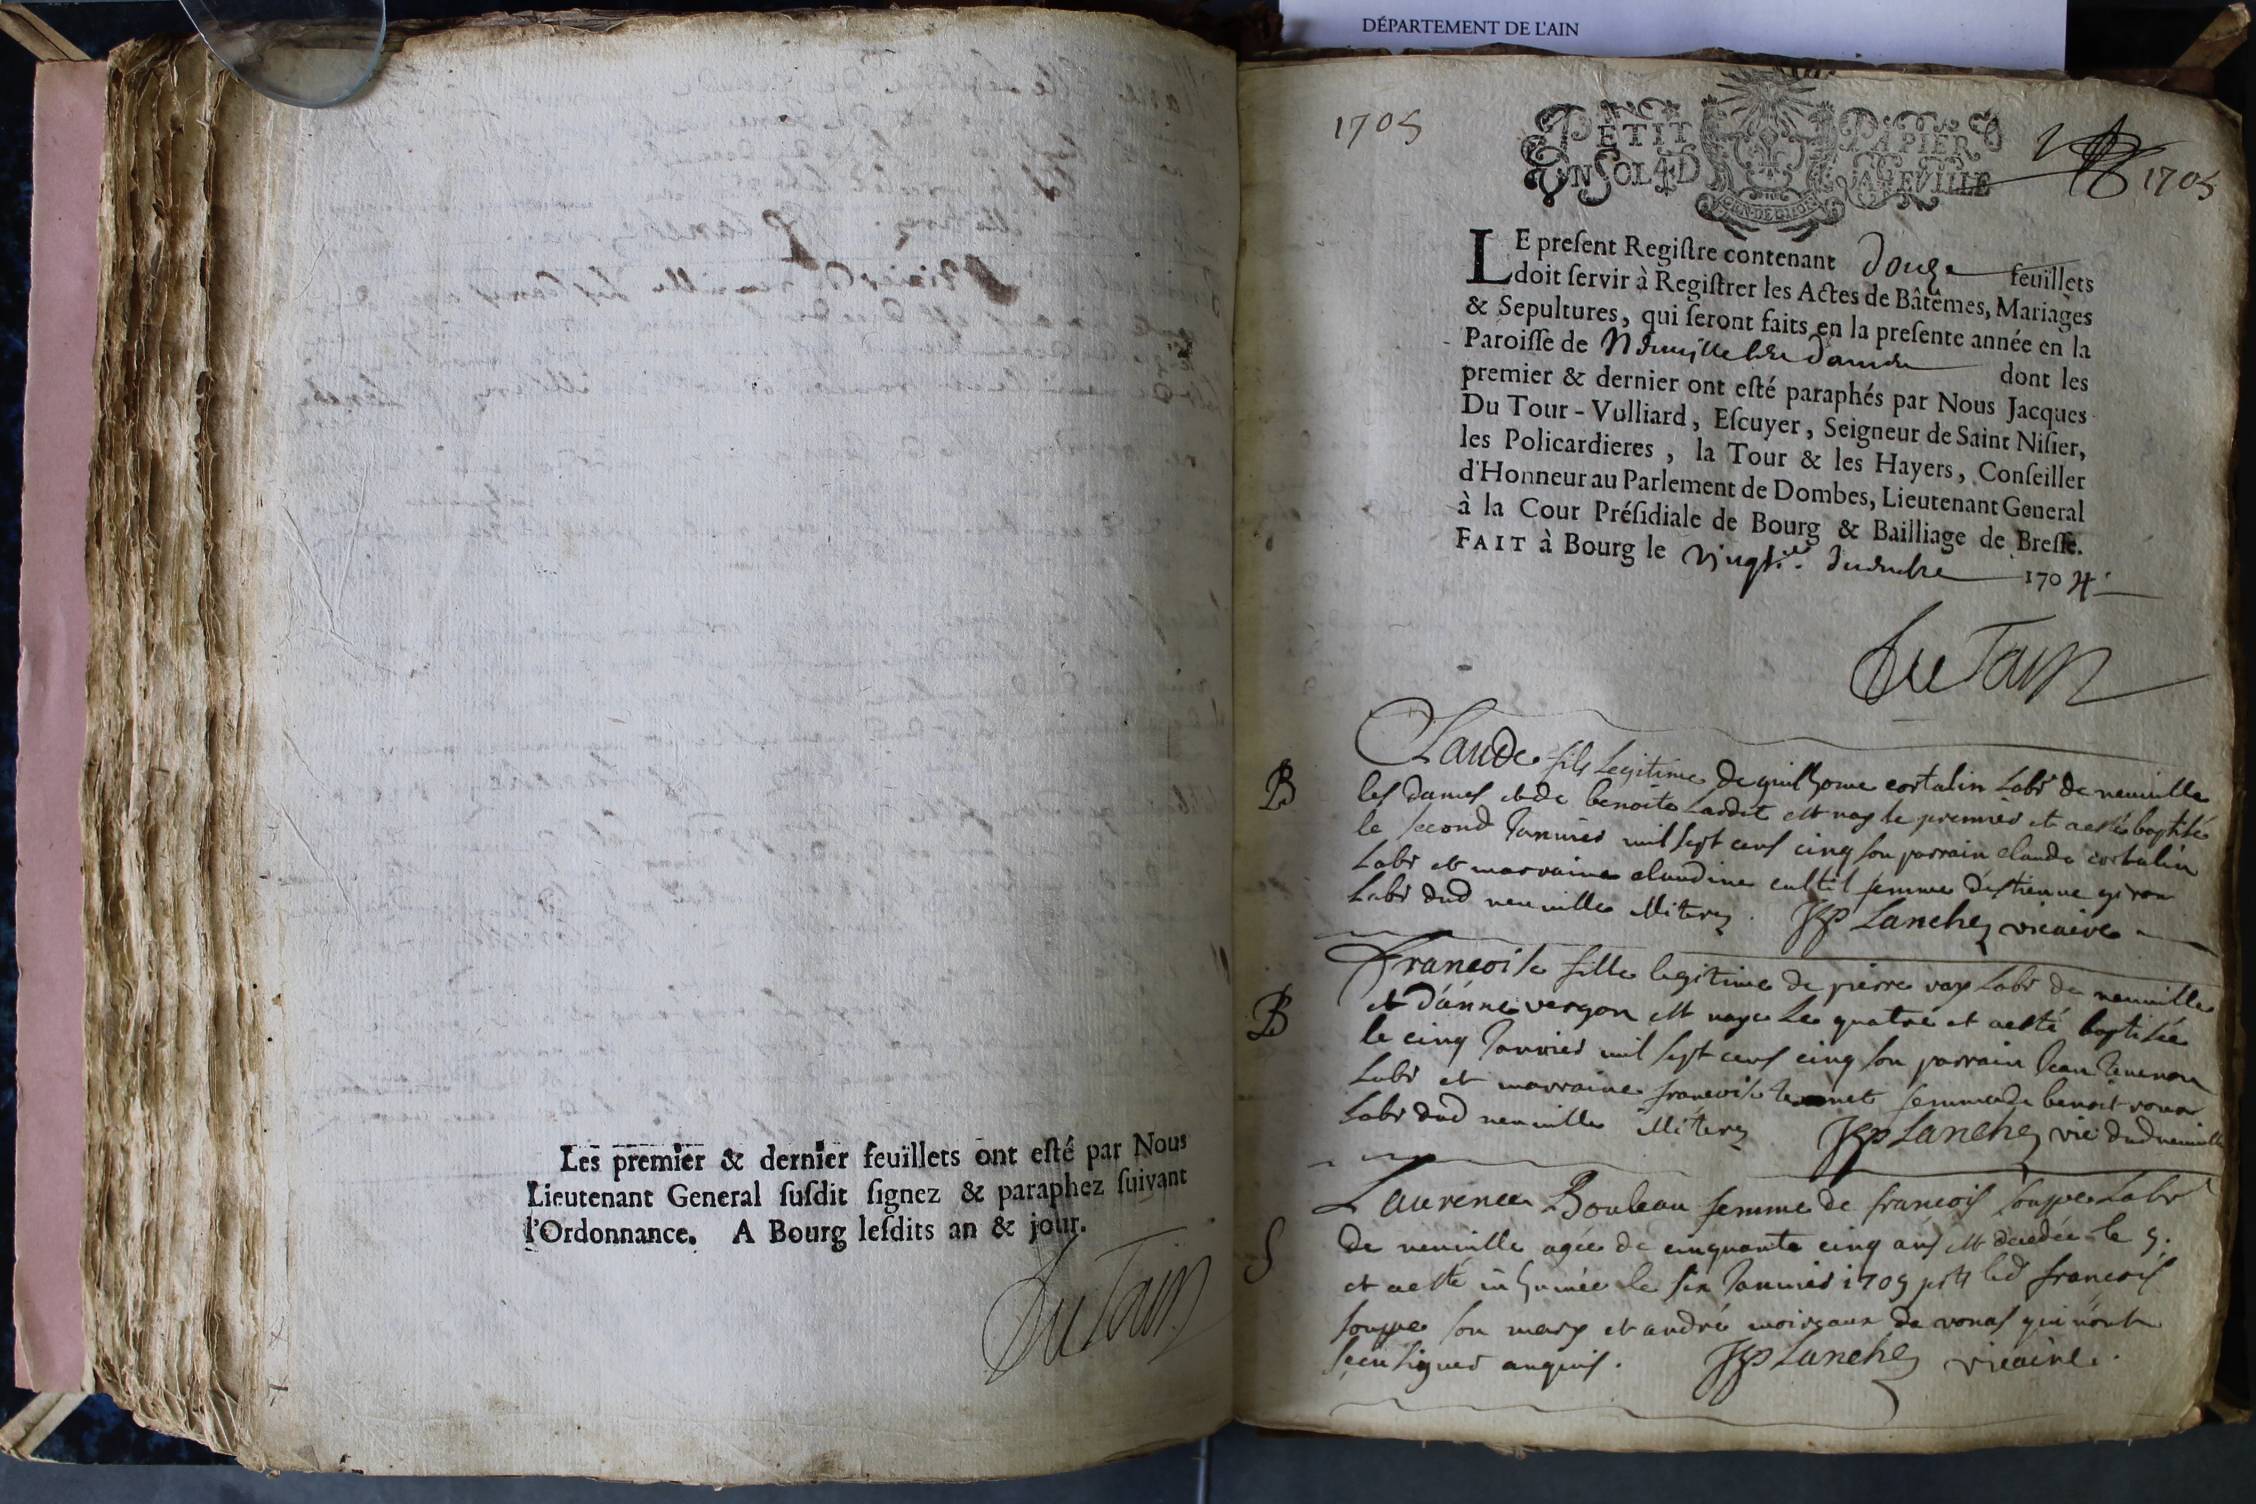 Les premier & dernier feuillets ont esté par Nous
Lieutenant General susdit signez & paraphez suivant
l'Ordonnance. A Bourg lesdits an & jour.
DÉPARTEMENT DE L'AIN
1705
PETIT PAPIER
1705
LE present Registre contenant douze feuillets
doit servir à Registrer les Actes de Bâtêmes, Mariages
& Sepultures, qui seront faits en la presente année en la
Paroisse de Neuville les dames dont les
premier & dernier ont esté paraphés par Nous Jacques
Du Tour-Vulliard, Escuyer, Seigneur de Saint Nisier,
les Policardieres, la Tour & les Hayers, Conseiller
d'Honneur au Parlement de Dombes, Lieutenant General
à la Cour Présidiale de Bourg & Bailliage de Bresse.
FAIT à Bourg le vingt decembre 1704
Claude fils legitime de guilhome cortalin Labr de neuville
B
les dames et de benoite est nay le premier et a esté baptisé
le second Janvier mil sept cens cinq son parrain claude cortalin
Labr et marraine claudine femme d'estienne
Labr dud neuville illiterez. Planchez vicaire
Francoise fille legitime de pierre vay Labr de neuville
B
et d'anne vergon est naye le quatre et a esté baptisée
le cinq Janvier mil sept cens cinq son parrain Jean
Labr et marraine francoise femme de benoit
Labr dud neuville illiterez Planchez vic dud neuville
Laurence Bouleau femme de francois souppe Labr
S
de neuville agée de cinquante cinq ans est decedée le 5.
et a esté inhumée le six Janvier 1705 pnts led francois
souppe son mary et andré de vonas qui n'ont
sceu signer enquis. Planchez vicaire.